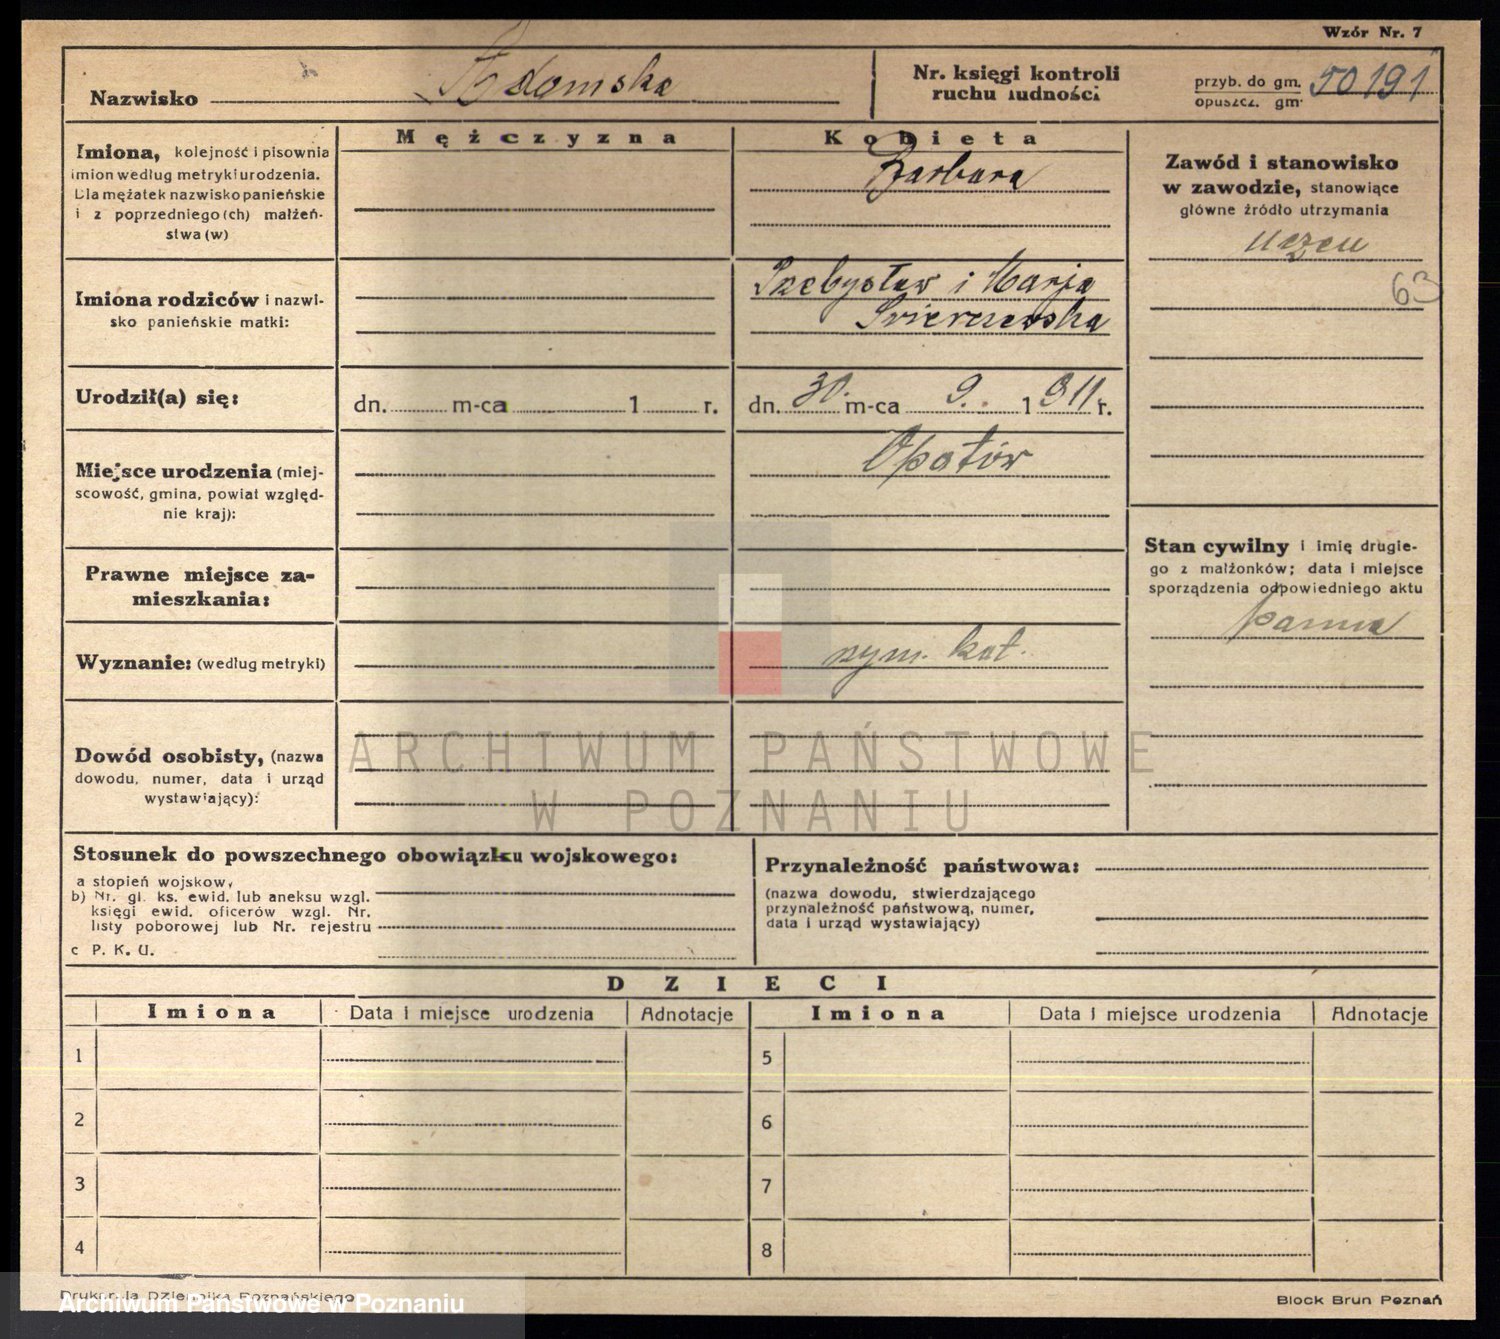 Wzór Nr. 7
Nazwisko Adamska
Nr. księgi kontroli ruchu ludności
przyb. do gm. 50191
opuszcz. gm.
Mężczyzna
Kobieta
Imiona, kolejność i pisownia
imion według metryki urodzenia.
Dla mężatek nazwisko panieńskie
i z poprzedniego(ch) małżeń-
stwa(w)
Barbara
Zawód i stanowisko
w zawodzie, stanowiące
główne źródło utrzymania
uczen
63
Imiona rodziców i nazwi-
sko panieńskie matki:
i Marja
Urodził(a) się:
dn. m-ca 1 r.
dn. 30. m-ca 9. 1911 r.
Miejsce urodzenia (miej-
scowość, gmina, powiat względ-
nie kraj):
Opatów
Stan cywilny i imię drugie-
go z małżonków; data i miejsce
sporządzenia odpowiedniego aktu
panna
Prawne miejsce za-
mieszkania:
Wyznanie: (według metryki)
rzym. kat.
Dowód osobisty, (nazwa
dowodu, numer, data i urząd
wystawiający):
ARCHIWUM PAŃSTWOWE
W POZNANIU
Stosunek do powszechnego obowiązku wojskowego:
a stopień wojskow,
b) Nr. gl. ks. ewid. lub aneksu wzgl.
księgi ewid. oficerów wzgl. Nr.
listy poborowej lub Nr. rejestru
c P. K. U.
Przynależność państwowa:
(nazwa dowodu, stwierdzającego
przynależność państwową, numer,
data i urząd wystawiający)
DZIECI
Imiona Data i miejsce urodzenia Adnotacje Imiona Data i miejsce urodzenia Adnotacje
1 5
2 6
3 7
4 8
Drukarnia Dziennika Poznańskiego
Archiwum Państwowe w Poznaniu
Block Brun Poznań